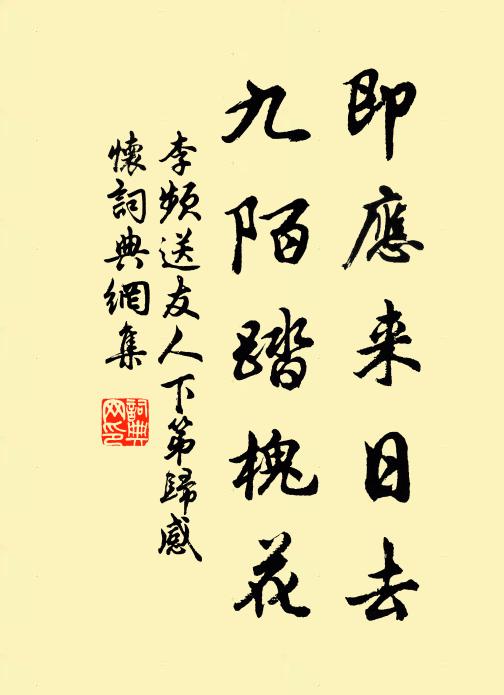 即應来日去
九陌踏槐花
李頻送友人下第歸感
懷詞典網集
詞典
网印